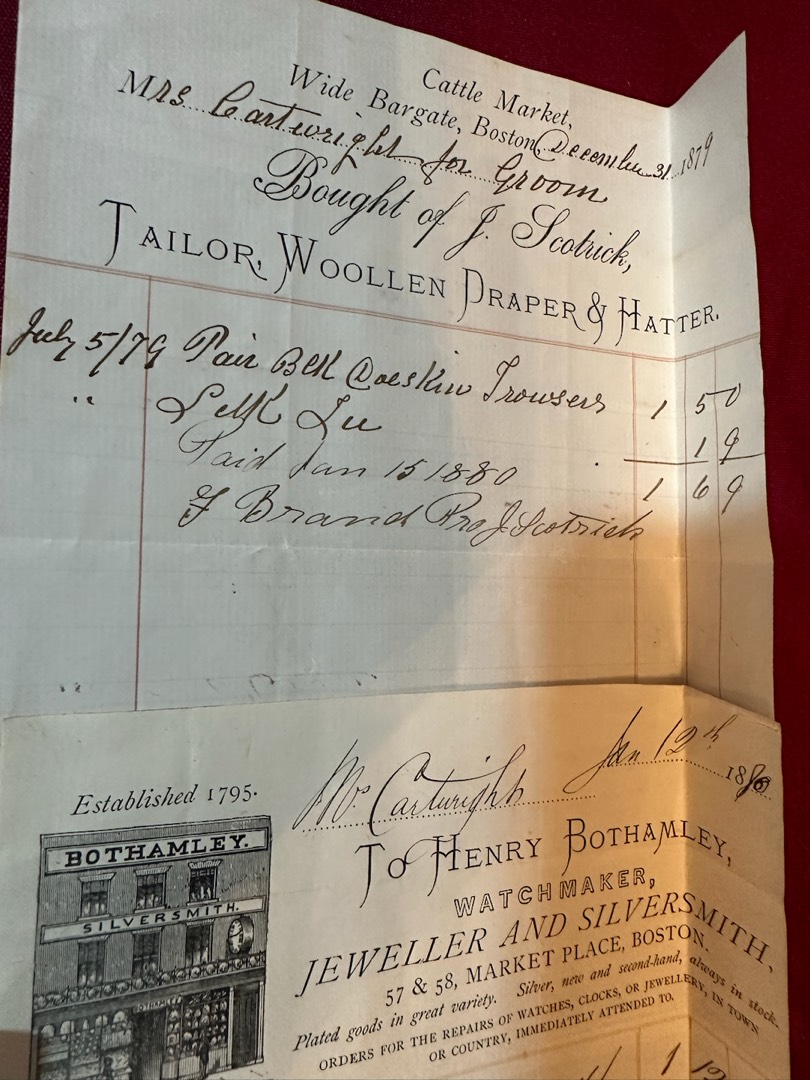 Cattle Market,
Wide Bargate, Boston, December 31 1879
Mrs Cartwright for Groom
Bought of J. Scotrick,
TAILOR, WOOLLEN DRAPER & HATTER.
July 5/79 Pair Blk Doeskin Trowsers 1 5 0
" Silk 1 9
Paid Jan 15 1880 1 6 9
F Brand Pro J Scotrick
Mrs Cartwright Jan 12th 1880
Established 1795.
BOTHAMLEY.
SILVERSMITH.
BOTHAMLEY
TO HENRY BOTHAMLEY,
WATCHMAKER,
JEWELLER AND SILVERSMITH,
57 & 58, MARKET PLACE, BOSTON.
Plated goods in great variety. Silver, new and second-hand, always in stock.
ORDERS FOR THE REPAIRS OF WATCHES, CLOCKS, OR JEWELLERY, IN TOWN
OR COUNTRY, IMMEDIATELY ATTENDED TO.